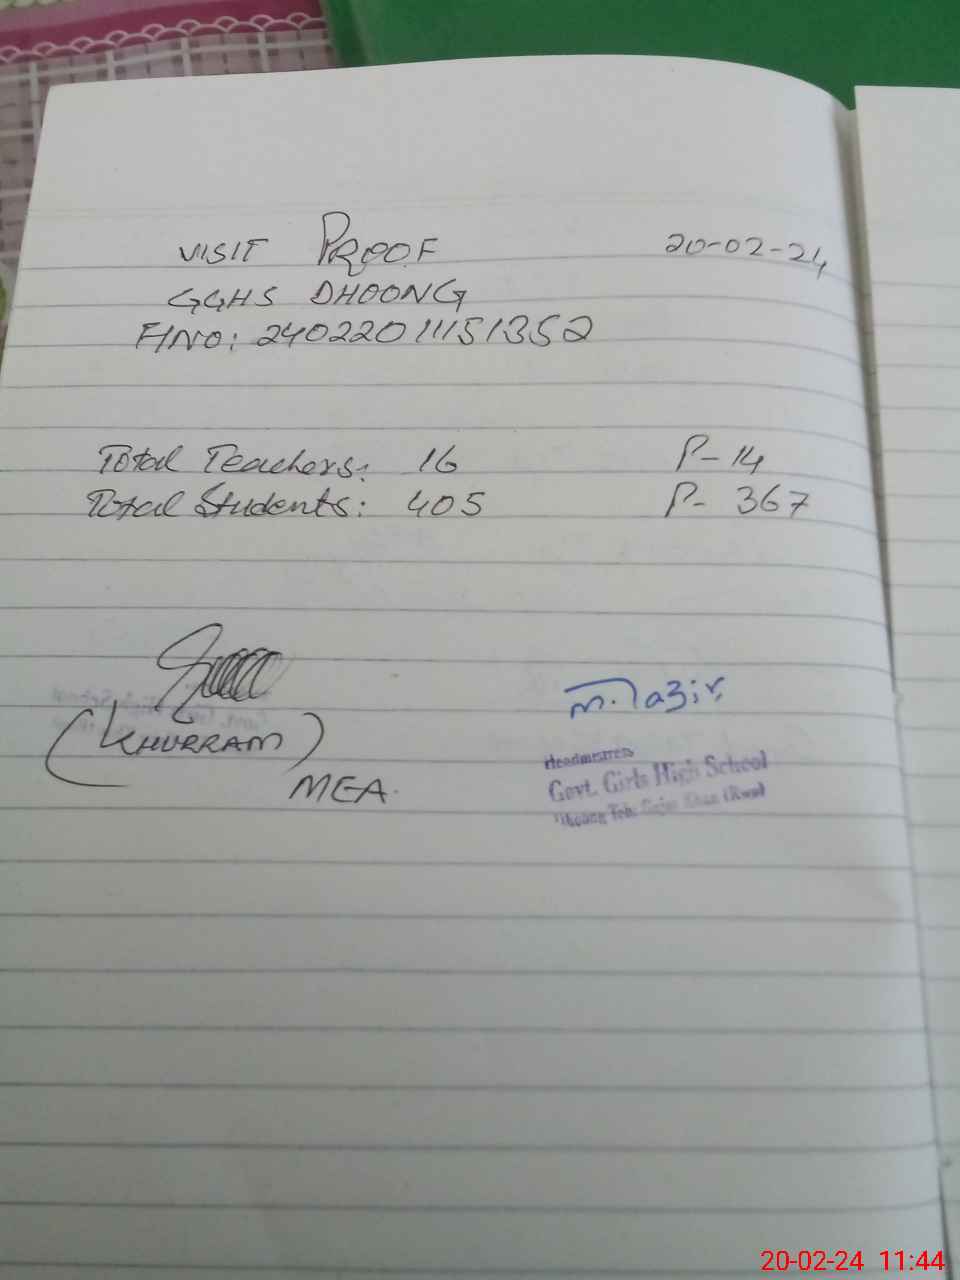 VISIT PROOF 20-02-24
GGHS DHOONG
F/NO: 24022011151352
Total Teachers: 16 P- 14
Total Students: 405 P- 367
(KHURRAM)
MEA.
Headmistress
Govt. Girls High School
Dhoong Teh: Gujar Khan (Rwp)
20-02-24 11:44